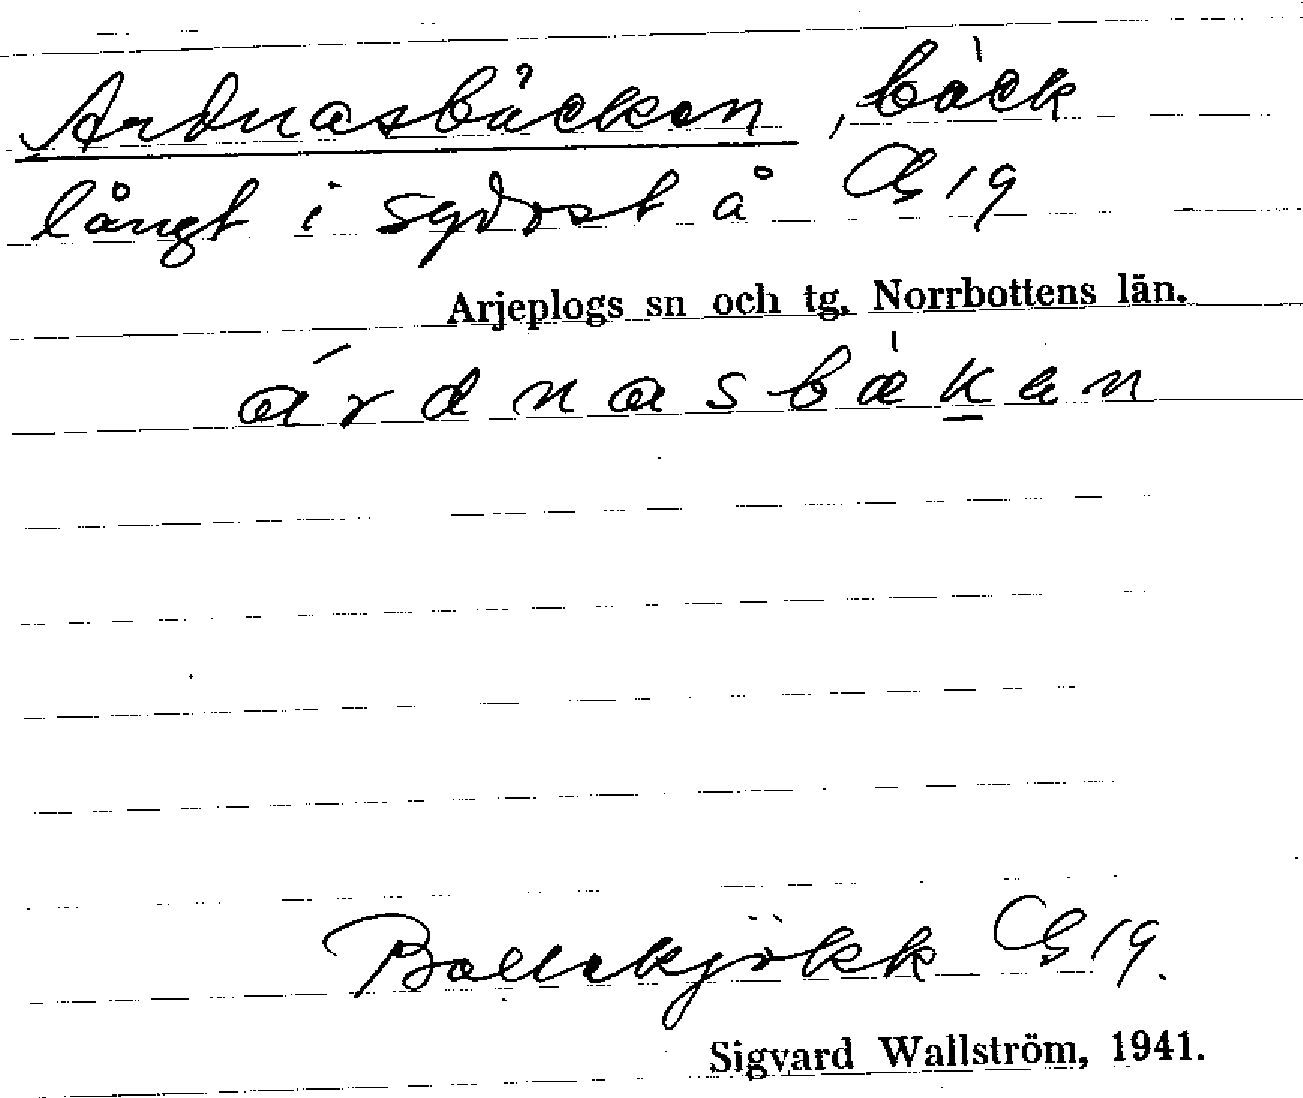 Ardnasbäcken, bäck
långt i sydost å G 19
Arjeplogs sn och tg. Norrbottens län.
árdnasbäḵen
Ballekjåkk G 19.
Sigvard Wallström, 1941.